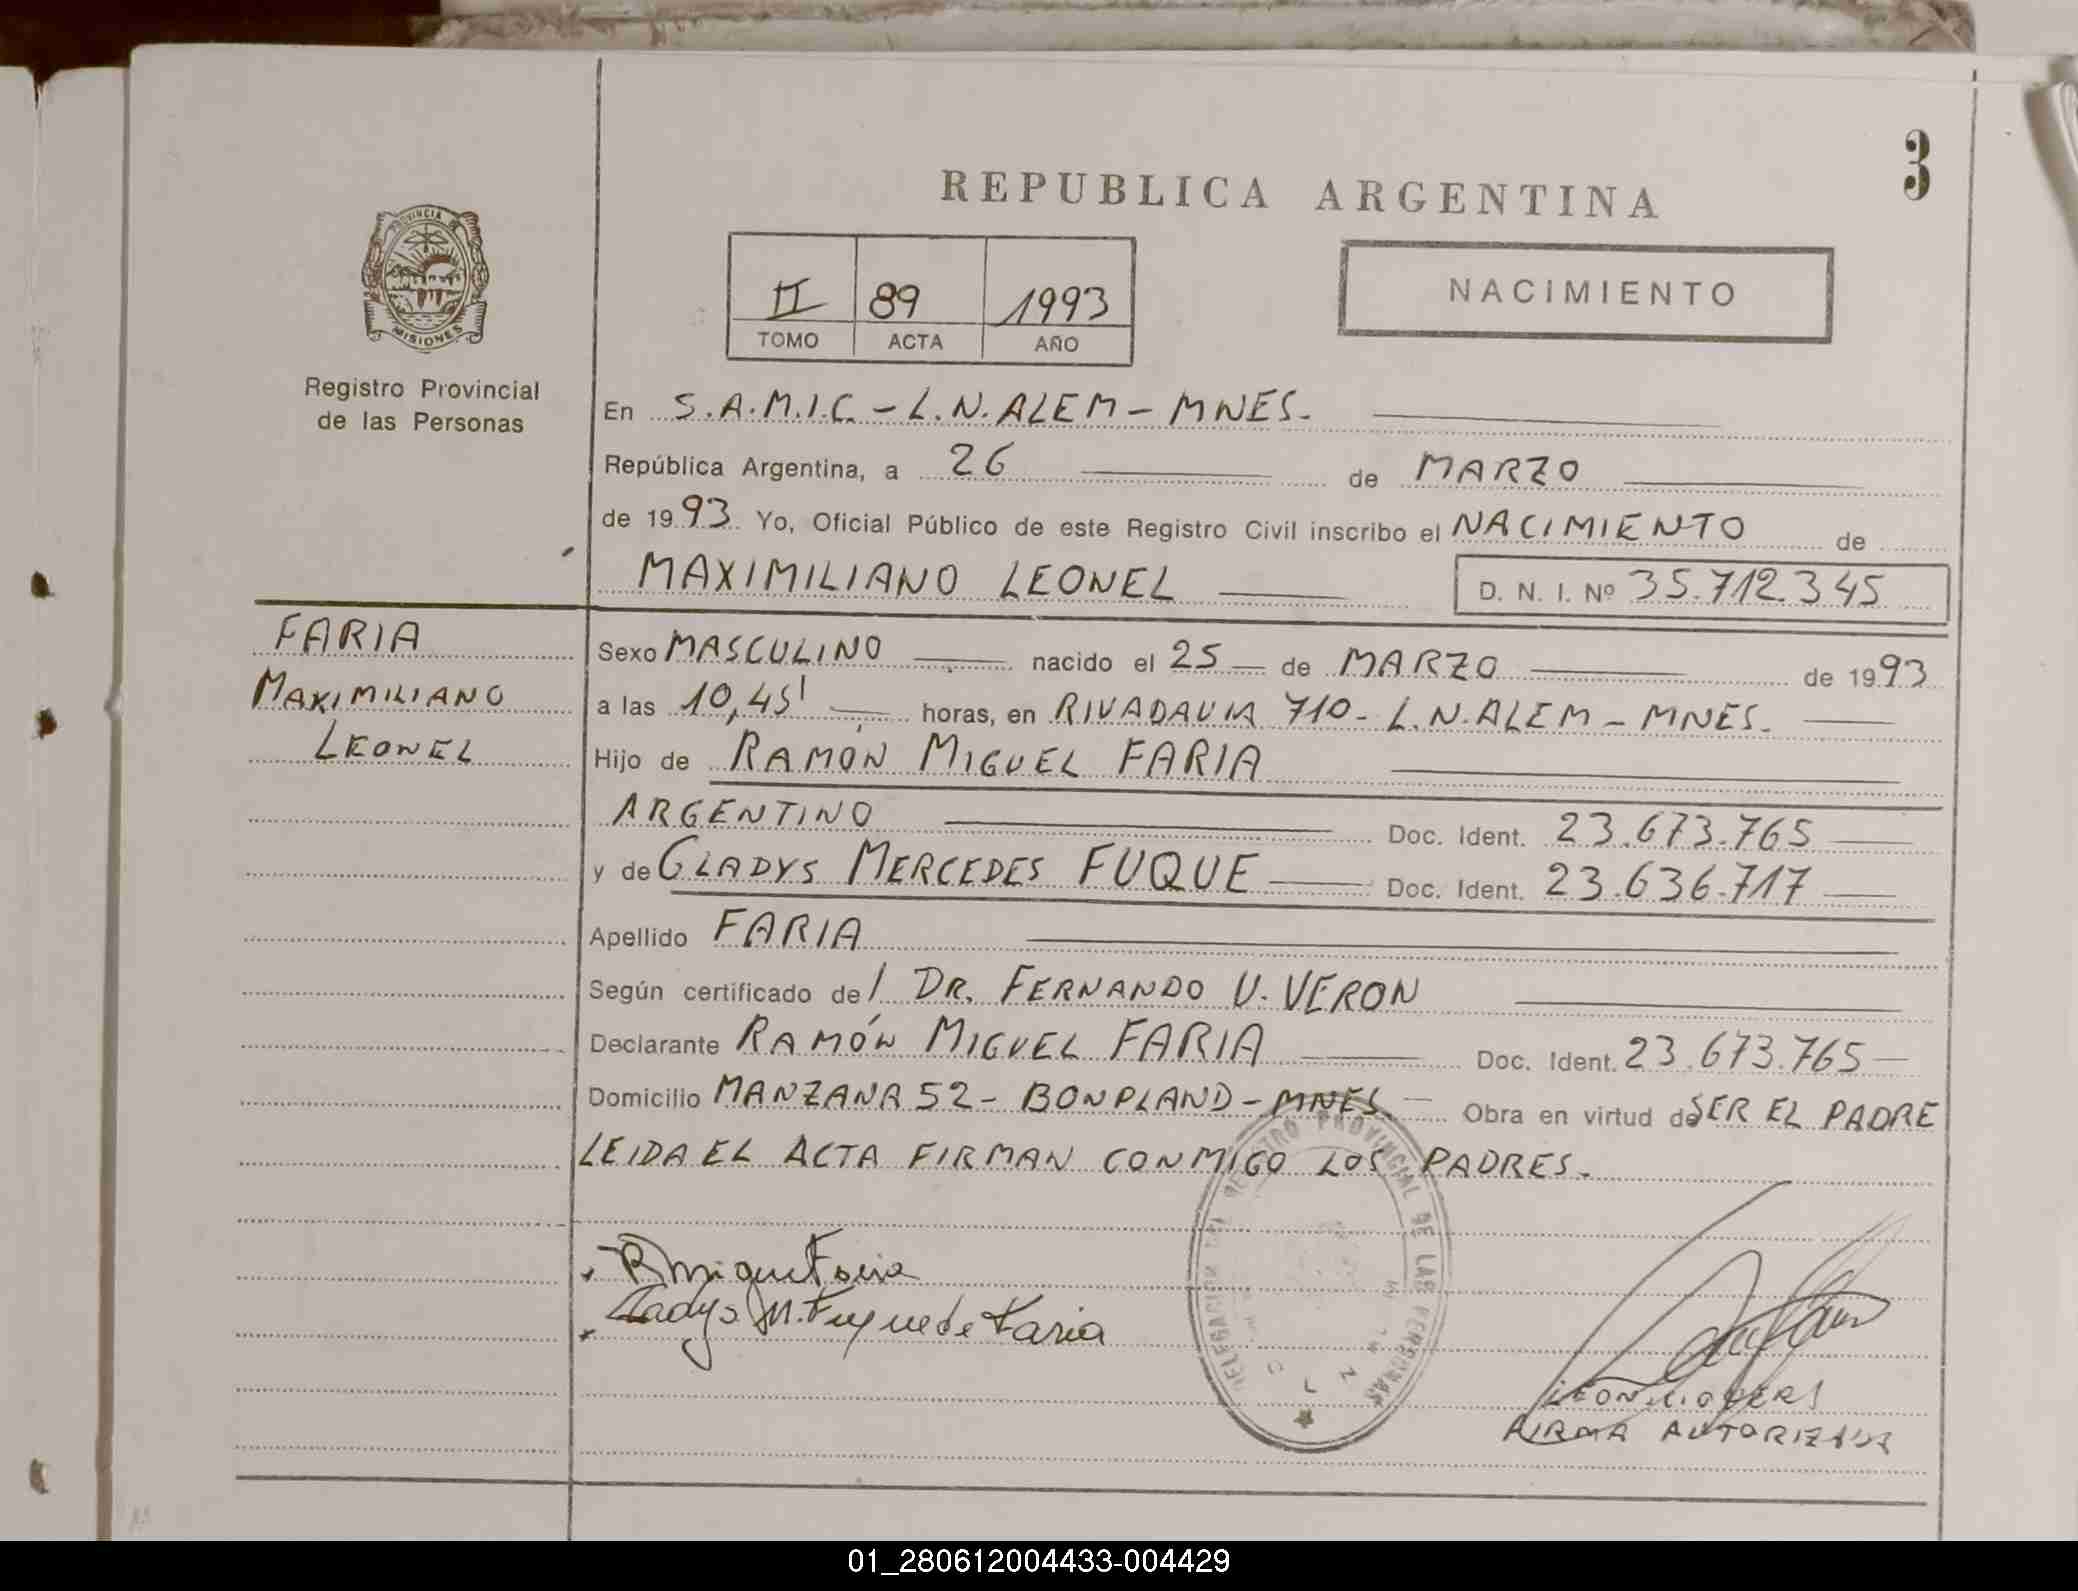 3
REPUBLICA ARGENTINA
PROVINCIA DE
MISIONES
Registro Provincial
de las Personas
II 89 1993
TOMO ACTA AÑO
NACIMIENTO
En S.A.M.I.C. - L.N. ALEM - MNES.
República Argentina, a 26 de MARZO
de 1993 Yo, Oficial Público de este Registro Civil inscribo el NACIMIENTO de
MAXIMILIANO LEONEL D. N. I. Nº 35.712.345
FARIA
MAXIMILIANO
LEONEL
Sexo MASCULINO nacido el 25 de MARZO de 1993
a las 10,45' horas, en RIVADAVIA 710 - L.N. ALEM - MNES.
Hijo de RAMÓN MIGUEL FARIA
ARGENTINO Doc. Ident. 23.673.765
y de GLADYS MERCEDES FUQUE Doc. Ident. 23.636.717
Apellido FARIA
Según certificado del DR. FERNANDO V. VERON
Declarante RAMÓN MIGUEL FARIA Doc. Ident. 23.673.765
Domicilio MANZANA 52 - BONPLAND - MNES. Obra en virtud de SER EL PADRE
LEIDA EL ACTA FIRMAN CONMIGO LOS PADRES.
DELEGACION DEL REGISTRO PROVINCIAL DE LAS PERSONAS
R Miguel Faria
Gladys M. Fuque de Faria
FIRMA AUTORIZADA
01_280612004433-004429